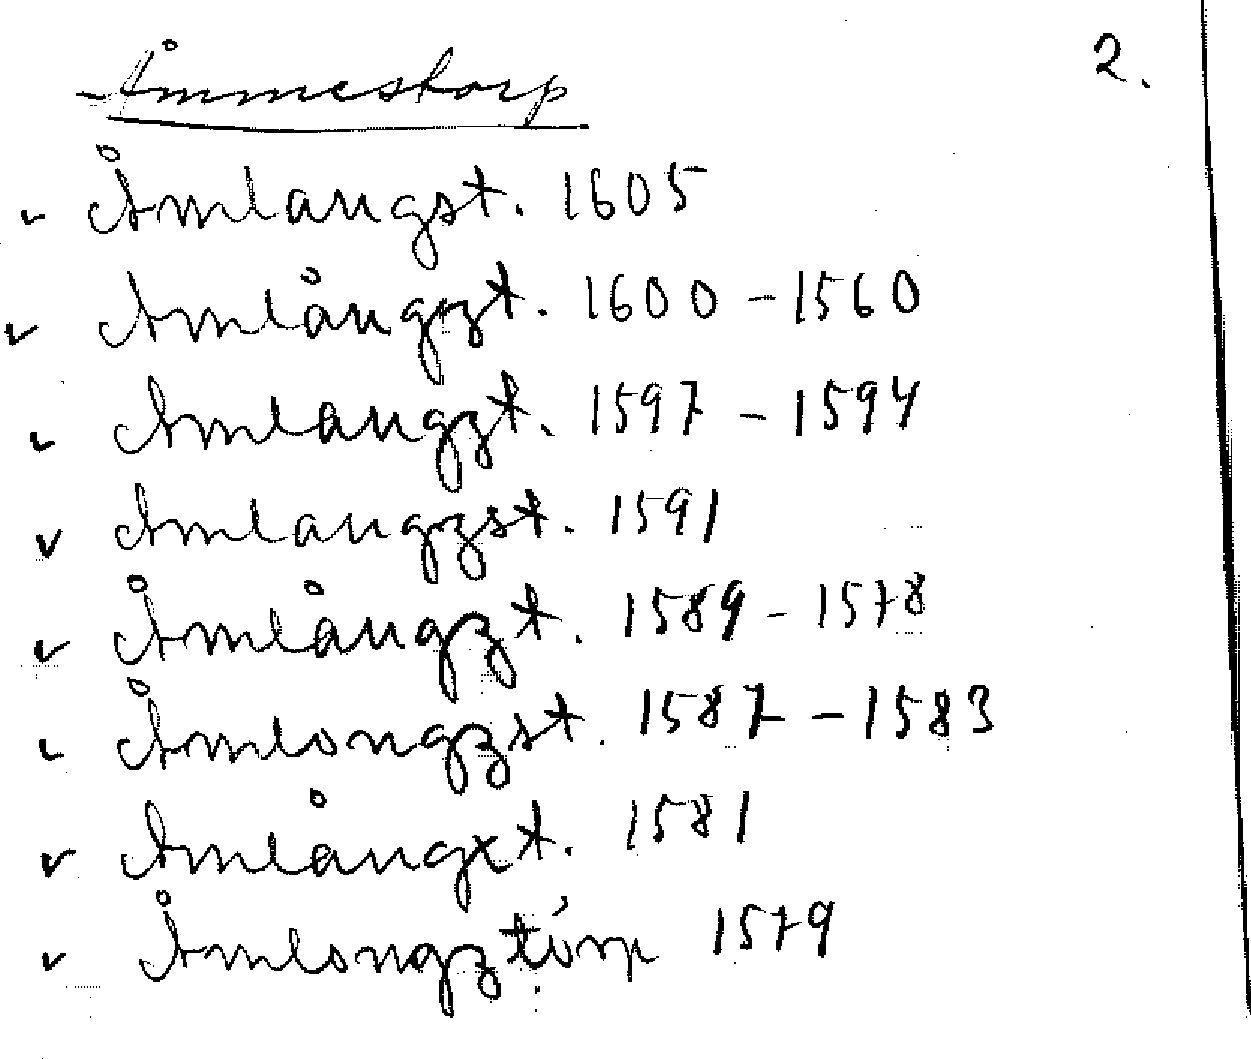 Åmmestorp 2.
v Åmlangst. 1605
v Amlångzt. 1600 - 1560
v Amlangzt. 1597 - 1594
v Amlangzst. 1591
v Åmlångzt. 1589 - 1578
v Åmlongzst. 1587 - 1583
v Amlångxt. 1581
v Åmlongztórp 1579